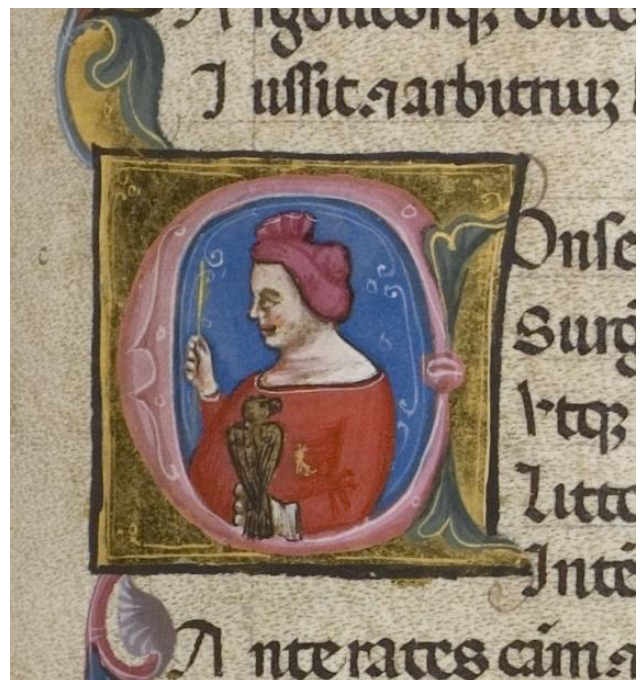 I ussit ⁊ arbitriuz
COnse
Surg
Litto
Inte
A nte rates cam ⁊